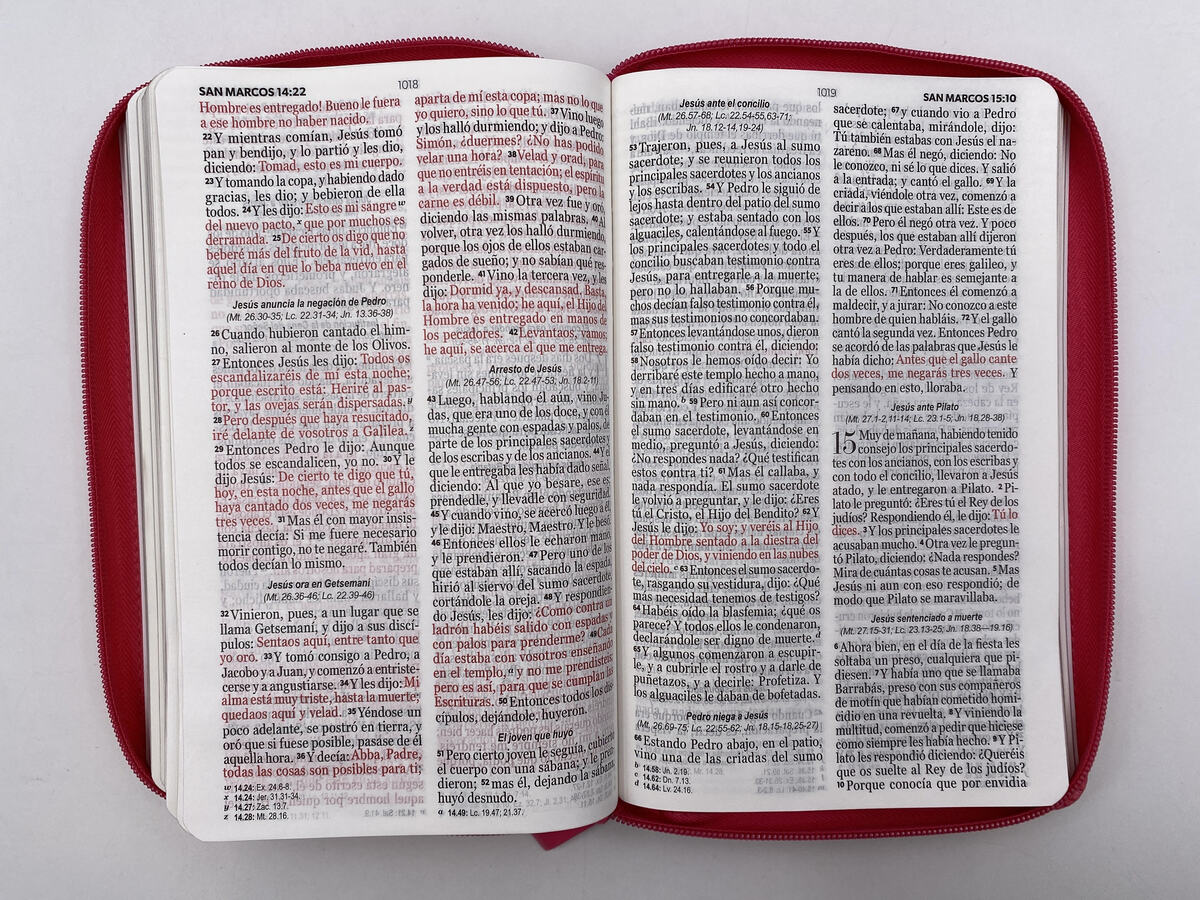 SAN MARCOS 14:22
1018
Hombre es entregado! Bueno le fuera
a ese hombre no haber nacido.
22 Y mientras comían, Jesús tomó
pan y bendijo, y lo partió y les dio,
diciendo: Tomad, esto es mi cuerpo.
23 Y tomando la copa, y habiendo dado
gracias, les dio; y bebieron de ella
todos. 24 Y les dijo: Esto es mi sangre w
del nuevo pacto, x que por muchos es
derramada. 25 De cierto os digo que no
beberé más del fruto de la vid, hasta
aquel día en que lo beba nuevo en el
reino de Dios.
Jesús anuncia la negación de Pedro
(Mt. 26.30-35; Lc. 22.31-34; Jn. 13.36-38)
26 Cuando hubieron cantado el him-
no, salieron al monte de los Olivos.
27 Entonces Jesús les dijo: Todos os
escandalizaréis de mí esta noche;
porque escrito está: Heriré al pas-
tor, y las ovejas serán dispersadas. y
28 Pero después que haya resucitado,
iré delante de vosotros a Galilea. z
29 Entonces Pedro le dijo: Aunque
todos se escandalicen, yo no. 30 Y le
dijo Jesús: De cierto te digo que tú,
hoy, en esta noche, antes que el gallo
haya cantado dos veces, me negarás
tres veces. 31 Mas él con mayor insis-
tencia decía: Si me fuere necesario
morir contigo, no te negaré. También
todos decían lo mismo.
Jesús ora en Getsemaní
(Mt. 26.36-46; Lc. 22.39-46)
32 Vinieron, pues, a un lugar que se
llama Getsemaní, y dijo a sus discí-
pulos: Sentaos aquí, entre tanto que
yo oro. 33 Y tomó consigo a Pedro, a
Jacobo y a Juan, y comenzó a entriste-
cerse y a angustiarse. 34 Y les dijo: Mi
alma está muy triste, hasta la muerte;
quedaos aquí y velad. 35 Yéndose un
poco adelante, se postró en tierra, y
oró que si fuese posible, pasase de él
aquella hora. 36 Y decía: Abba, Padre,
todas las cosas son posibles para ti;
w 14.24: Ex. 24.6-8.
x 14.24: Jer. 31.31-34.
y 14.27: Zac. 13.7.
z 14.28: Mt. 28.16.
aparta de mí esta copa; mas no lo que
yo quiero, sino lo que tú. 37 Vino luego
y los halló durmiendo; y dijo a Pedro:
Simón, ¿duermes? ¿No has podido
velar una hora? 38 Velad y orad, para
que no entréis en tentación; el espíritu
a la verdad está dispuesto, pero la
carne es débil. 39 Otra vez fue y oró,
diciendo las mismas palabras. 40 Al
volver, otra vez los halló durmiendo,
porque los ojos de ellos estaban car-
gados de sueño; y no sabían qué res-
ponderle. 41 Vino la tercera vez, y les
dijo: Dormid ya, y descansad. Basta,
la hora ha venido; he aquí, el Hijo del
Hombre es entregado en manos de
los pecadores. 42 Levantaos, vamos;
he aquí, se acerca el que me entrega.
Arresto de Jesús
(Mt. 26.47-56; Lc. 22.47-53; Jn. 18.2-11)
43 Luego, hablando él aún, vino Ju-
das, que era uno de los doce, y con él
mucha gente con espadas y palos, de
parte de los principales sacerdotes y
de los escribas y de los ancianos. 44 Y el
que le entregaba les había dado señal,
diciendo: Al que yo besare, ese es;
prendedle, y llevadle con seguridad.
45 Y cuando vino, se acercó luego a él,
y le dijo: Maestro, Maestro. Y le besó.
46 Entonces ellos le echaron mano,
y le prendieron. 47 Pero uno de los
que estaban allí, sacando la espada,
hirió al siervo del sumo sacerdote,
cortándole la oreja. 48 Y respondien-
do Jesús, les dijo: ¿Como contra un
ladrón habéis salido con espadas y
con palos para prenderme? 49 Cada
día estaba con vosotros enseñando
en el templo, a y no me prendisteis;
pero es así, para que se cumplan las
Escrituras. 50 Entonces todos los dis-
cípulos, dejándole, huyeron.
El joven que huyó
51 Pero cierto joven le seguía, cubierto
el cuerpo con una sábana; y le pren-
dieron; 52 mas él, dejando la sábana,
huyó desnudo.
a 14.49: Lc. 19.47; 21.37.
1019
SAN MARCOS 15:10
Jesús ante el concilio
(Mt. 26.57-68; Lc. 22.54-55,63-71;
Jn. 18.12-14,19-24)
53 Trajeron, pues, a Jesús al sumo
sacerdote; y se reunieron todos los
principales sacerdotes y los ancianos
y los escribas. 54 Y Pedro le siguió de
lejos hasta dentro del patio del sumo
sacerdote; y estaba sentado con los
alguaciles, calentándose al fuego. 55 Y
los principales sacerdotes y todo el
concilio buscaban testimonio contra
Jesús, para entregarle a la muerte;
pero no lo hallaban. 56 Porque mu-
chos decían falso testimonio contra él,
mas sus testimonios no concordaban.
57 Entonces levantándose unos, dieron
falso testimonio contra él, diciendo:
58 Nosotros le hemos oído decir: Yo
derribaré este templo hecho a mano,
y en tres días edificaré otro hecho
sin mano. b 59 Pero ni aun así concor-
daban en el testimonio. 60 Entonces
el sumo sacerdote, levantándose en
medio, preguntó a Jesús, diciendo:
¿No respondes nada? ¿Qué testifican
estos contra ti? 61 Mas él callaba, y
nada respondía. El sumo sacerdote
le volvió a preguntar, y le dijo: ¿Eres
tú el Cristo, el Hijo del Bendito? 62 Y
Jesús le dijo: Yo soy; y veréis al Hijo
del Hombre sentado a la diestra del
poder de Dios, y viniendo en las nubes
del cielo. c 63 Entonces el sumo sacerdo-
te, rasgando su vestidura, dijo: ¿Qué
más necesidad tenemos de testigos?
64 Habéis oído la blasfemia; ¿qué os
parece? Y todos ellos le condenaron,
declarándole ser digno de muerte. d
65 Y algunos comenzaron a escupir-
le, y a cubrirle el rostro y a darle de
puñetazos, y a decirle: Profetiza. Y
los alguaciles le daban de bofetadas.
Pedro niega a Jesús
(Mt. 26.69-75; Lc. 22.55-62; Jn. 18.15-18,25-27)
66 Estando Pedro abajo, en el patio,
vino una de las criadas del sumo
b 14.58: Jn. 2.19.
c 14.62: Dn. 7.13.
d 14.64: Lv. 24.16.
sacerdote; 67 y cuando vio a Pedro
que se calentaba, mirándole, dijo:
Tú también estabas con Jesús el na-
zareno. 68 Mas él negó, diciendo: No
le conozco, ni sé lo que dices. Y salió
a la entrada; y cantó el gallo. 69 Y la
criada, viéndole otra vez, comenzó a
decir a los que estaban allí: Este es de
ellos. 70 Pero él negó otra vez. Y poco
después, los que estaban allí dijeron
otra vez a Pedro: Verdaderamente tú
eres de ellos; porque eres galileo, y
tu manera de hablar es semejante a
la de ellos. 71 Entonces él comenzó a
maldecir, y a jurar: No conozco a este
hombre de quien habláis. 72 Y el gallo
cantó la segunda vez. Entonces Pedro
se acordó de las palabras que Jesús le
había dicho: Antes que el gallo cante
dos veces, me negarás tres veces. Y
pensando en esto, lloraba.
Jesús ante Pilato
(Mt. 27.1-2,11-14; Lc. 23.1-5; Jn. 18.28-38)
15 Muy de mañana, habiendo tenido
consejo los principales sacerdo-
tes con los ancianos, con los escribas y
con todo el concilio, llevaron a Jesús
atado, y le entregaron a Pilato. 2 Pi-
lato le preguntó: ¿Eres tú el Rey de los
judíos? Respondiendo él, le dijo: Tú lo
dices. 3 Y los principales sacerdotes le
acusaban mucho. 4 Otra vez le pregun-
tó Pilato, diciendo: ¿Nada respondes?
Mira de cuántas cosas te acusan. 5 Mas
Jesús ni aun con eso respondió; de
modo que Pilato se maravillaba.
Jesús sentenciado a muerte
(Mt. 27.15-31; Lc. 23.13-25; Jn. 18.38—19.16)
6 Ahora bien, en el día de la fiesta les
soltaba un preso, cualquiera que pi-
diesen. 7 Y había uno que se llamaba
Barrabás, preso con sus compañeros
de motín que habían cometido homi-
cidio en una revuelta. 8 Y viniendo la
multitud, comenzó a pedir que hiciese
como siempre les había hecho. 9 Y Pi-
lato les respondió diciendo: ¿Queréis
que os suelte al Rey de los judíos?
10 Porque conocía que por envidia